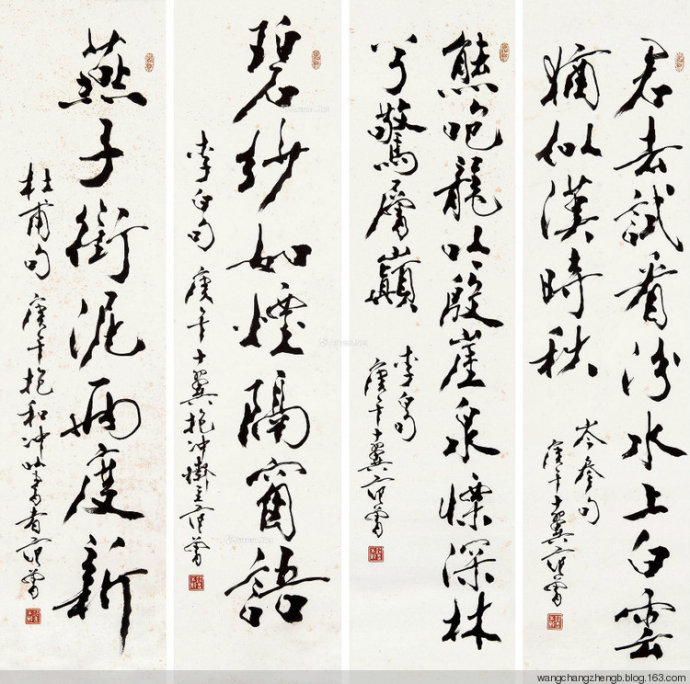 君去試看汾水上白雲
猶似漢時秋
岑參句
庚午十翼范曾
熊咆龍吟殷崖泉慄深林
兮驚層巔
李白句
庚午十翼范曾
碧紗如煙隔窗語
李白句 庚午十翼抱冲齋主范曾
燕子銜泥兩度新
杜甫句 庚午抱和冲 者范曾
wangchangzhengb.blog.163.com